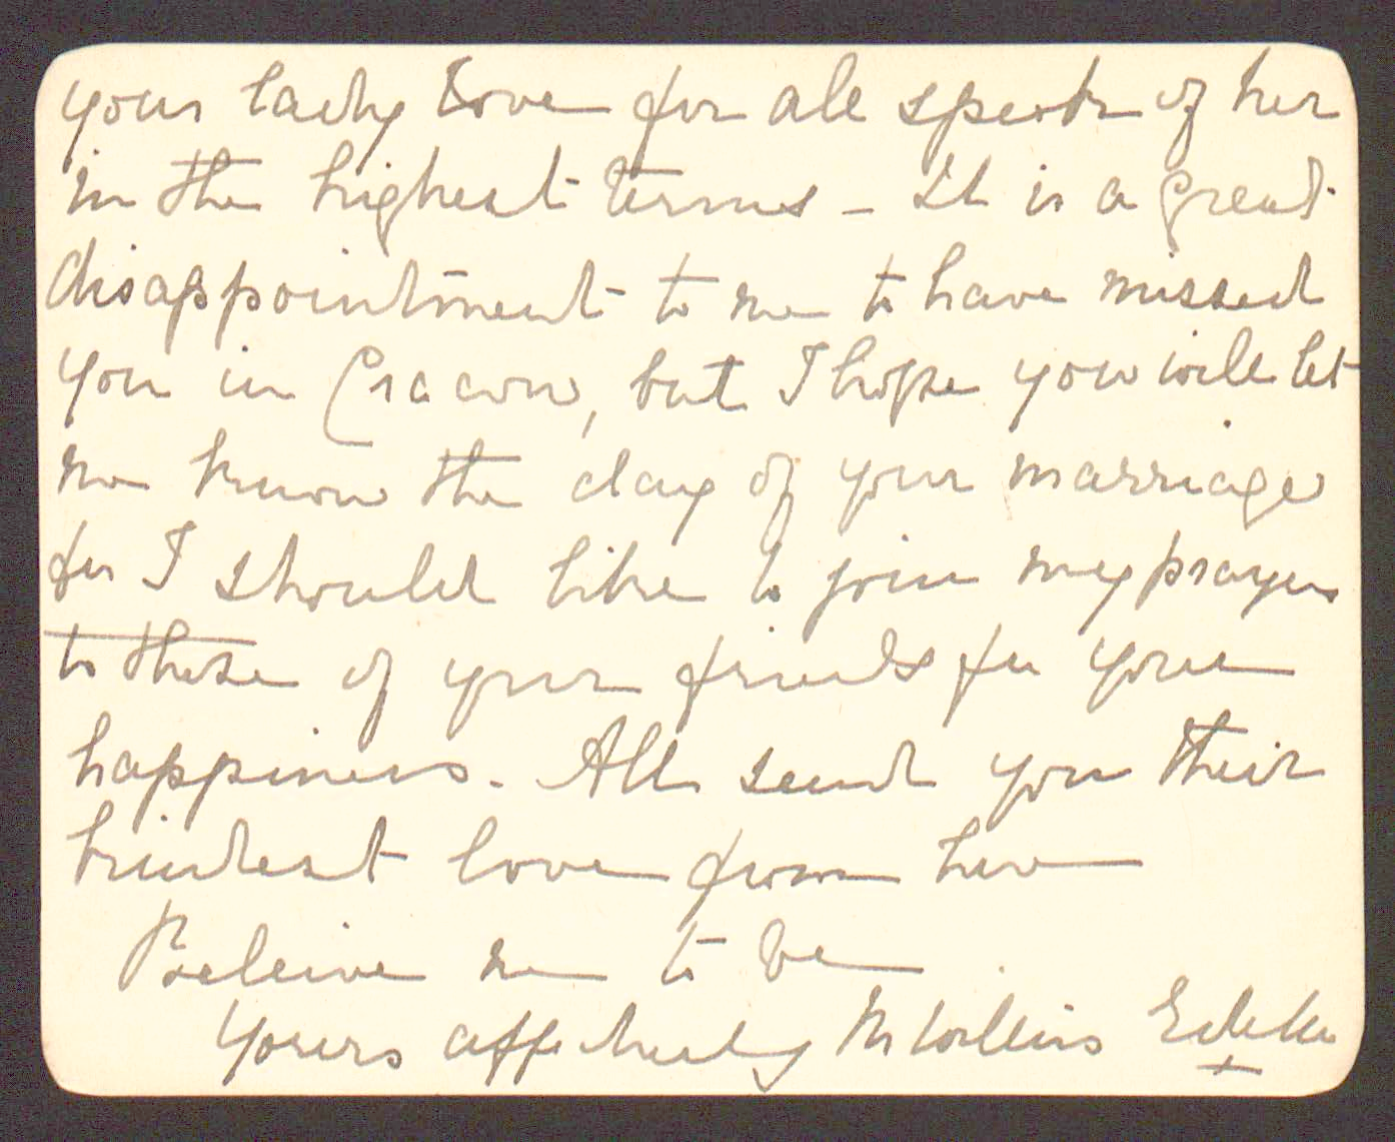 your lady Love for all speak of her
in the highest terms - It is a great
disappointment to me to have missed
you in Cracow, but I hope you will let
me know the day of your marriage
for I should like to join my prayers
to those of your friends for your
happiness. All send you their
kindest love from here
Beleive me to be
Yours affectately M